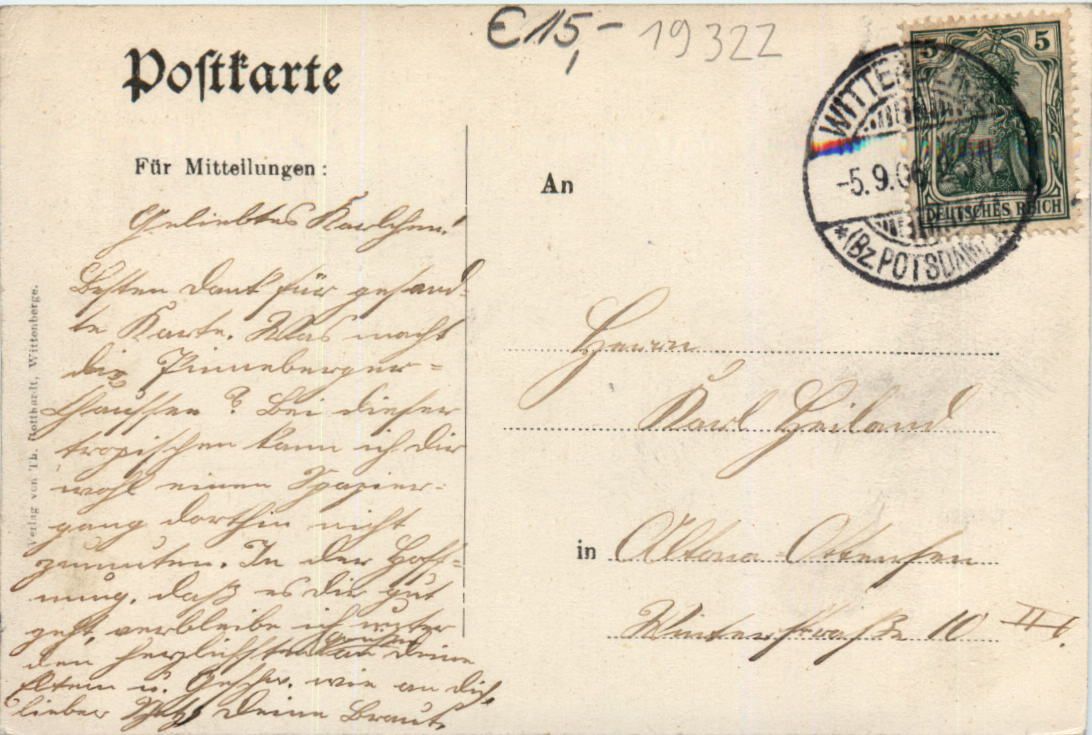 € 15,- 19322
Postkarte
5 5
DEUTSCHES REICH
WITTENBERGE
-5.9.06
*(BZ. POTSDAM)
Für Mitteilungen:
An
Geliebtes Karlchen!
Besten Dank für gesand-
te Karte. Was macht
die Pinneberger-
Chaussee? Bei dieser
tropischen kann ich dir
wohl einen Spazier-
gang dorthin nicht
zumuten. In der Hoff-
nung, daß es dir gut
geht, verbleibe ich unter
den herzlichsten Grüßen an deine
Eltern u. Geschw. wie an dich,
lieber Deine Braut.
Herrn
Karl Heiland
in Altona-Ottensen
Winterstraße 10 III.
Verlag von Th. Rotthardt, Wittenberge.